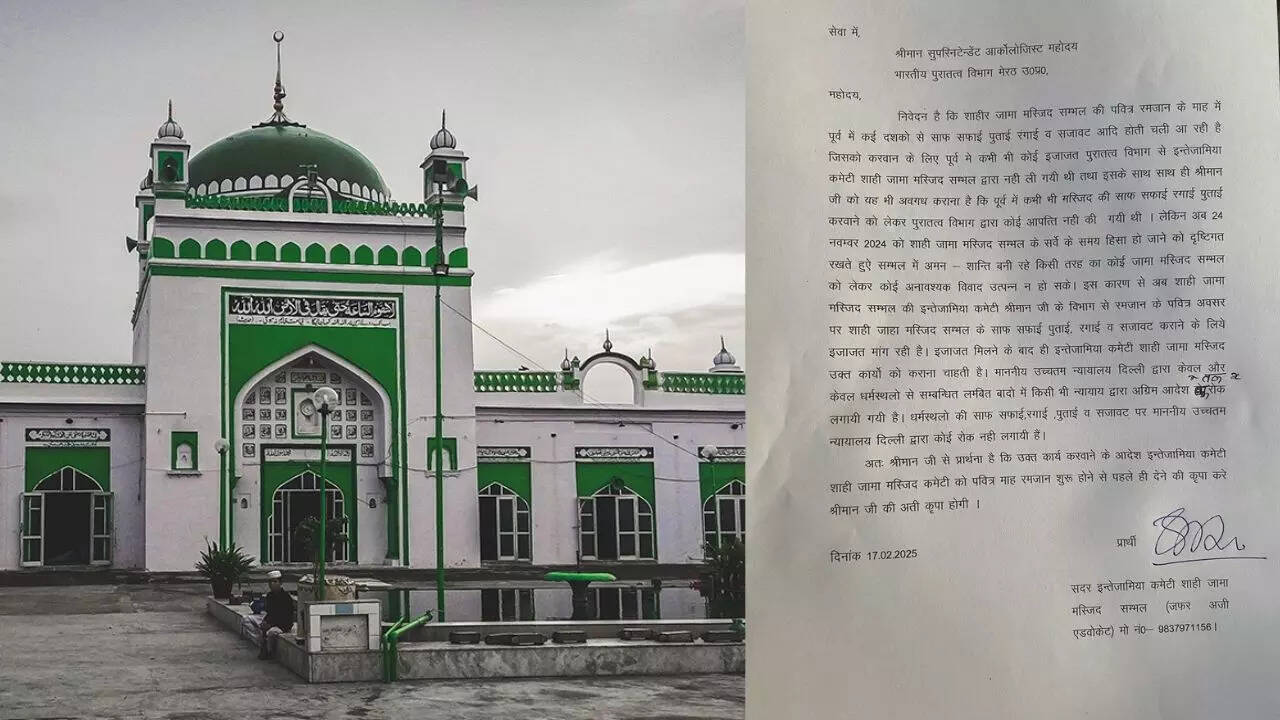 सेवा में,
श्रीमान सुपरिनटेन्डेंट आर्कोलोजिस्ट महोदय
भारतीय पुरातत्व विभाग मेरठ उ0प्र0,
महोदय,
निवेदन है कि शाहीर जामा मस्जिद सम्भल की पवित्र रमजान के माह में
पूर्व में कई दशको से साफ सफाई पुताई रंगाई व सजावट आदि होती चली आ रही है
जिसको करवान के लिए पूर्व मे कभी भी कोई इजाजत पुरातत्व विभाग से इन्तेजामिया
कमेटी शाही जामा मस्जिद सम्भल द्वारा नही ली गयी थी तथा इसके साथ साथ ही श्रीमान
जी को यह भी अवगध कराना है कि पूर्व में कभी भी मस्जिद की साफ सफाई रगाई पुताई
करवाने को लेकर पुरातत्व विभाग द्वारा कोई आपत्ति नही की गयी थी । लेकिन अब 24
नवम्वर 2024 को शाही जामा मस्जिद सम्भल के सर्वे के समय हिसा हो जाने को दृष्टिगत
रखते हुऐ सम्भल में अमन – शान्ति बनी रहे किसी तरह का कोई जामा मस्जिद सम्भल
को लेकर कोई अनावश्यक विवाद उत्पन्न न हो सके। इस कारण से अब शाही जामा
मस्जिद सम्भल की इन्तेजामिया कमेटी श्रीमान जी के विभाग से रमजान के पवित्र अवसर
पर शाही जाहा मस्जिद सम्भल के साफ सफाई पुताई, रगाई व सजावट कराने के लिये
इजाजत मांग रही है। इजाजत मिलने के बाद ही इन्तेजामिया कमेटी शाही जामा मस्जिद
उक्त कार्यो को कराना चाहती है। माननीय उच्चतम न्यायालय दिल्ली द्वारा केवल और
केवल धर्मस्थलो से सम्बन्धित लमंबित बादो में किसी भी न्यायाय द्वारा अग्रिम आदेश रोक
लगायी गयी है। धर्मस्थलो की साफ सफाई,रगाई ,पुताई व सजावट पर माननीय उच्चतम
न्यायालय दिल्ली द्वारा कोई रोक नही लगायी हैं।
अतः श्रीमान जी से प्रार्थना है कि उक्त कार्य करवाने के आदेश इन्तेजामिया कमेटी
शाही जामा मस्जिद कमेटी को पवित्र माह रमजान शुरू होने से पहले ही देने की कृपा करे
श्रीमान जी की अती कृपा होगी ।
दिनांक 17.02.2025
प्रार्थी
सदर इन्तेजामिया कमेटी शाही जामा
मस्जिद सम्भल (जफर अजी
एडवोकेट) मो नं0– 9837971156।